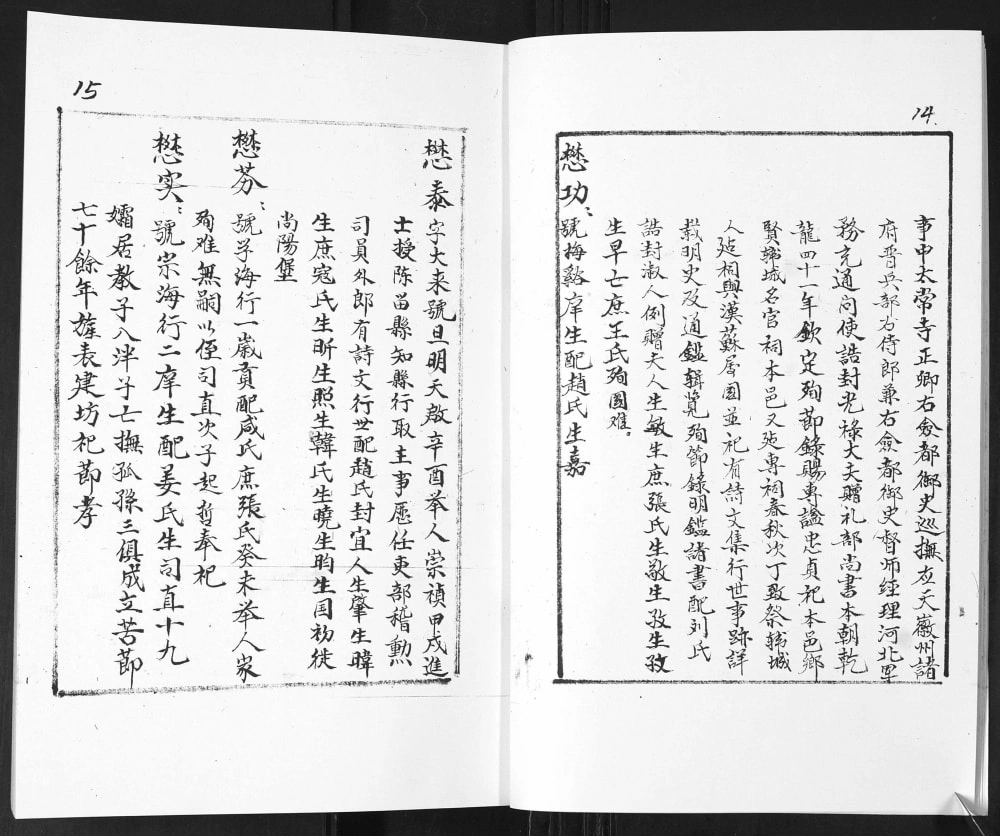 14
事申太常寺正卿右僉都御史巡撫应天徽州諸
府晋兵部右侍郎兼右僉都御史督師經理河北军
務充通问使誥封光祿大夫赠礼部尚書本朝乾
龍四十一年欽定殉節錄賜專謚忠貞祀本邑鄉
賢韩城名宦祠本邑又建專祠春秋次丁致祭韩城
人建祠與漢蘇属國並祀有詩文集行世事跡詳
載明史及通鑑辑览殉節錄明鑑諸書配刘氏
誥封淑人例赠夫人生敏生庶張氏生敬生孜生孜
生早亡庶王氏殉國难。
懋功：號梅谿庠生配趙氏生嘉
15
懋泰字大来號旦明天啟辛酉举人崇禎甲戌進
士授陈留縣知縣行取主事歷任吏部稽勲
司員外郎有詩文行世配趙氏封宜人生肇生暐
生庶寇氏生昕生照生韓氏生曉生昀生国初徙
尚陽堡
懋芬：號孚海行一歲貢配咸氏庶張氏癸未举人家
殉难無嗣以侄司直次子起哲奉祀
懋实：號崇海行二庠生配姜氏生司直十九
孀居教子入泮子亡撫孤孫三俱成立苦節
七十餘年旌表建坊祀節孝